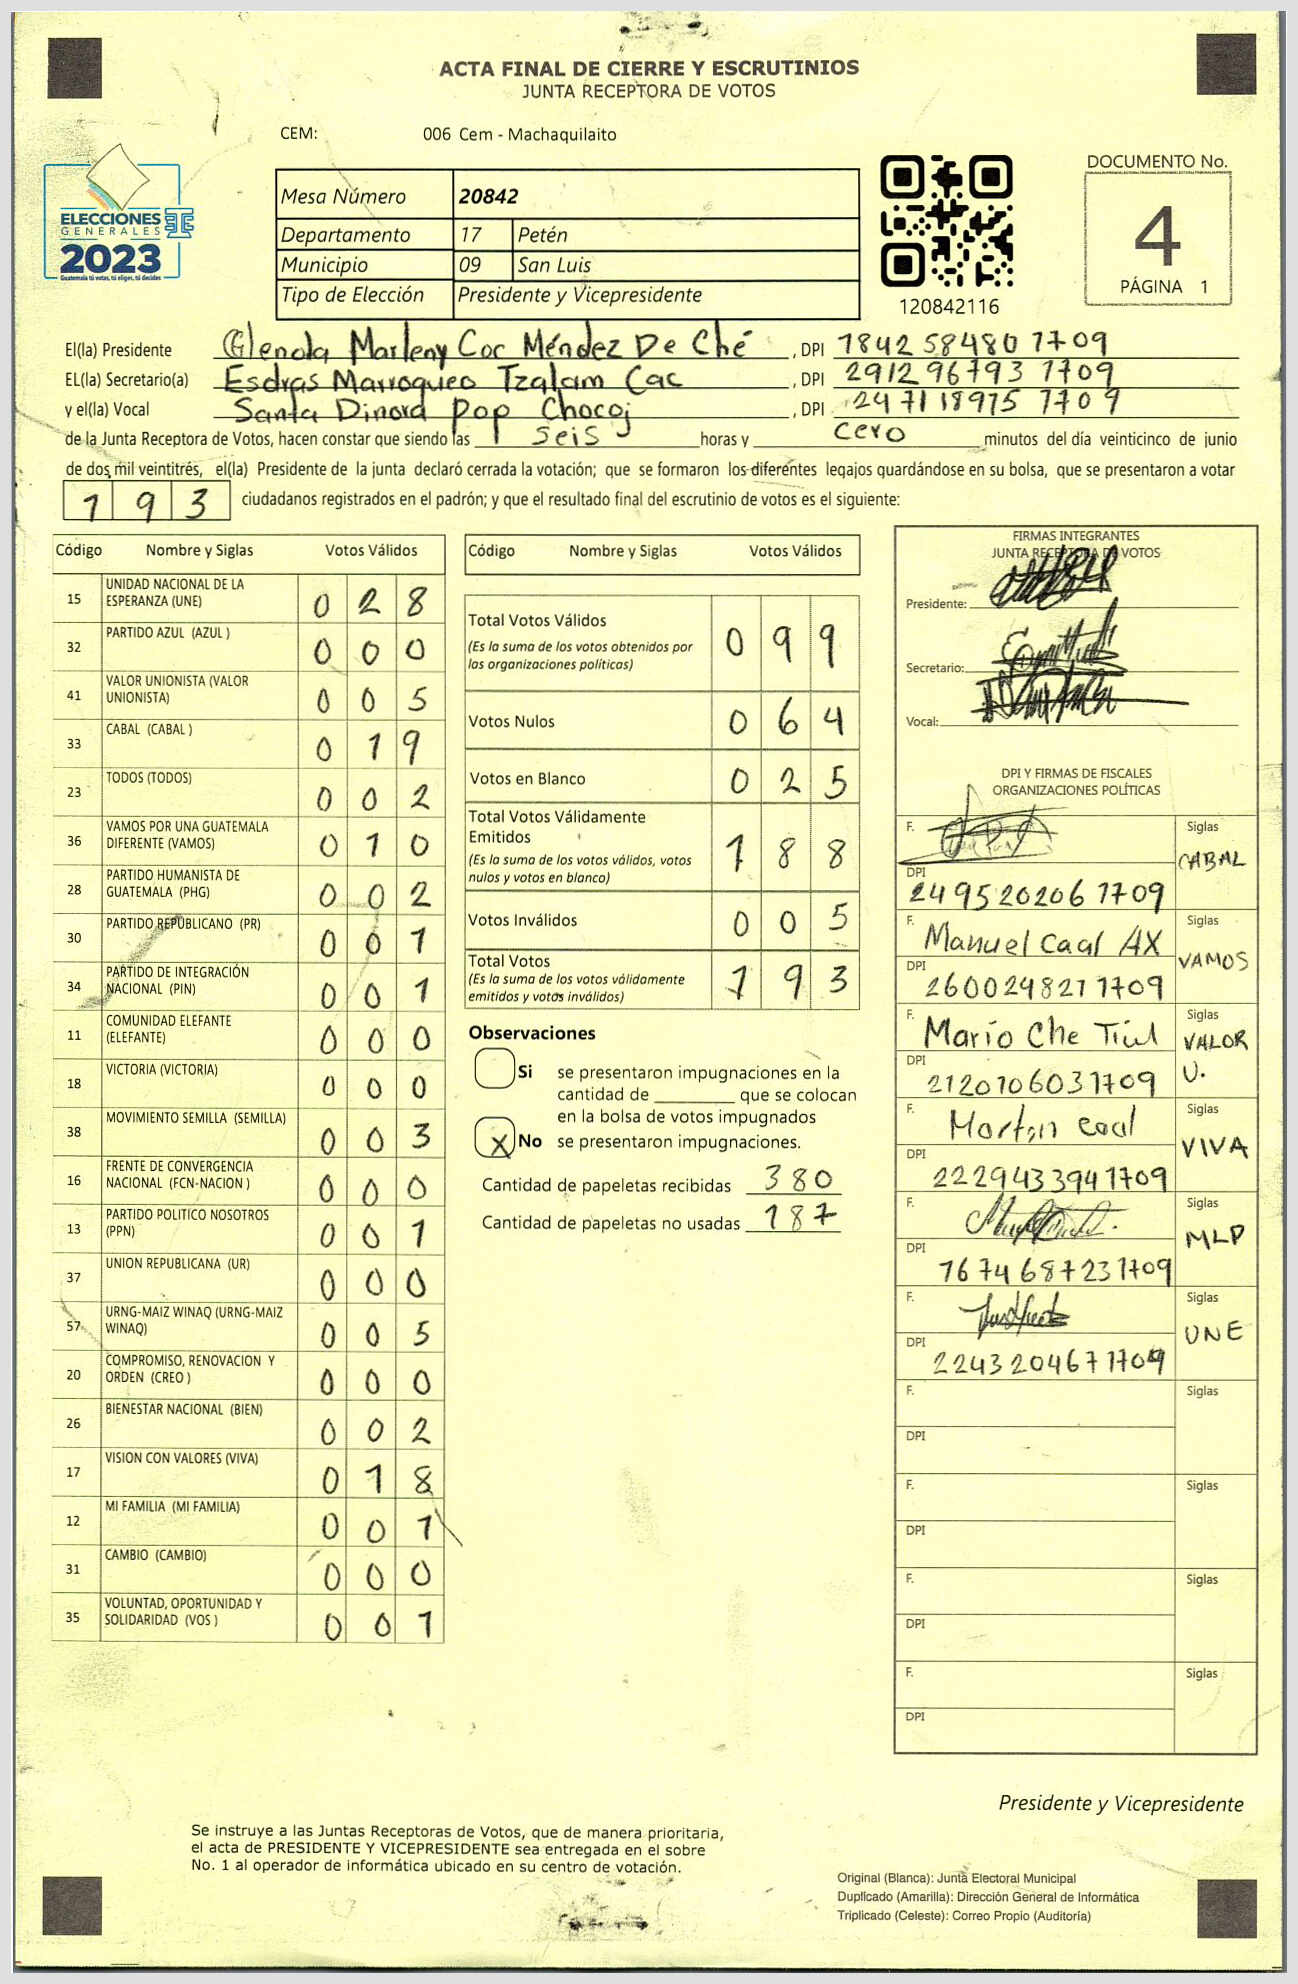 ACTA FINAL DE CIERRE Y ESCRUTINIOS
JUNTA RECEPTORA DE VOTOS
CEM: 006 Cem - Machaquilaito
ELECCIONES
GENERALES
2023
Guatemala tú votas, tú eliges, tú decides
Mesa Número 20842
Departamento 17 Petén
Municipio 09 San Luis
Tipo de Elección Presidente y Vicepresidente
120842116
DOCUMENTO No.
4
PÁGINA 1
El(la) Presidente Glenda Marleny Coc Méndez De Ché , DPI 1842 58480 1709
EL(la) Secretario(a) Esdras Marroqueo Tzalam Cac , DPI 2912 96793 1709
y el(la) Vocal Santa Dinora Pop Chocoj , DPI 2471 18975 1709
de la Junta Receptora de Votos, hacen constar que siendo las seis horas y cero minutos del día veinticinco de junio
de dos mil veintitrés, el(la) Presidente de la junta declaró cerrada la votación; que se formaron los diferentes legajos guardándose en su bolsa, que se presentaron a votar
193 ciudadanos registrados en el padrón; y que el resultado final del escrutinio de votos es el siguiente:
Código Nombre y Siglas Votos Válidos
15 UNIDAD NACIONAL DE LA ESPERANZA (UNE) 0 2 8
32 PARTIDO AZUL (AZUL ) 0 0 0
41 VALOR UNIONISTA (VALOR UNIONISTA) 0 0 5
33 CABAL (CABAL ) 0 1 9
23 TODOS (TODOS) 0 0 2
36 VAMOS POR UNA GUATEMALA DIFERENTE (VAMOS) 0 1 0
28 PARTIDO HUMANISTA DE GUATEMALA (PHG) 0 0 2
30 PARTIDO REPUBLICANO (PR) 0 0 1
34 PARTIDO DE INTEGRACIÓN NACIONAL (PIN) 0 0 1
11 COMUNIDAD ELEFANTE (ELEFANTE) 0 0 0
18 VICTORIA (VICTORIA) 0 0 0
38 MOVIMIENTO SEMILLA (SEMILLA) 0 0 3
16 FRENTE DE CONVERGENCIA NACIONAL (FCN-NACION ) 0 0 0
13 PARTIDO POLITICO NOSOTROS (PPN) 0 0 1
37 UNION REPUBLICANA (UR) 0 0 0
57 URNG-MAIZ WINAQ (URNG-MAIZ WINAQ) 0 0 5
20 COMPROMISO, RENOVACION Y ORDEN (CREO ) 0 0 0
26 BIENESTAR NACIONAL (BIEN) 0 0 2
17 VISION CON VALORES (VIVA) 0 1 8
12 MI FAMILIA (MI FAMILIA) 0 0 1
31 CAMBIO (CAMBIO) 0 0 0
35 VOLUNTAD, OPORTUNIDAD Y SOLIDARIDAD (VOS ) 0 0 1
Código Nombre y Siglas Votos Válidos
Total Votos Válidos 0 9 9
(Es la suma de los votos obtenidos por
las organizaciones políticas)
Votos Nulos 0 6 4
Votos en Blanco 0 2 5
Total Votos Válidamente
Emitidos 1 8 8
(Es la suma de los votos válidos, votos
nulos y votos en blanco)
Votos Inválidos 0 0 5
Total Votos 1 9 3
(Es la suma de los votos válidamente
emitidos y votos inválidos)
Observaciones
Si se presentaron impugnaciones en la
cantidad de ________ que se colocan
en la bolsa de votos impugnados
X No se presentaron impugnaciones.
Cantidad de papeletas recibidas 380
Cantidad de papeletas no usadas 187
FIRMAS INTEGRANTES
JUNTA RECEPTORA DE VOTOS
Presidente:
Secretario:
Vocal:
DPI Y FIRMAS DE FISCALES
ORGANIZACIONES POLÍTICAS
F. Siglas CABAL
DPI 2495202061709
F. Manuel Caal AX Siglas VAMOS
DPI 2600248211709
F. Mario Che Tiul Siglas VALOR U.
DPI 2120106031709
F. Martin Caal Siglas VIVA
DPI 2229433941709
F. Siglas MLP
DPI 1674687231709
F. Siglas UNE
DPI 2243204671709
F. Siglas
DPI
F. Siglas
DPI
F. Siglas
DPI
F. Siglas
DPI
Presidente y Vicepresidente
Se instruye a las Juntas Receptoras de Votos, que de manera prioritaria,
el acta de PRESIDENTE Y VICEPRESIDENTE sea entregada en el sobre
No. 1 al operador de informática ubicado en su centro de votación.
Original (Blanca): Junta Electoral Municipal
Duplicado (Amarilla): Dirección General de Informática
Triplicado (Celeste): Correo Propio (Auditoría)